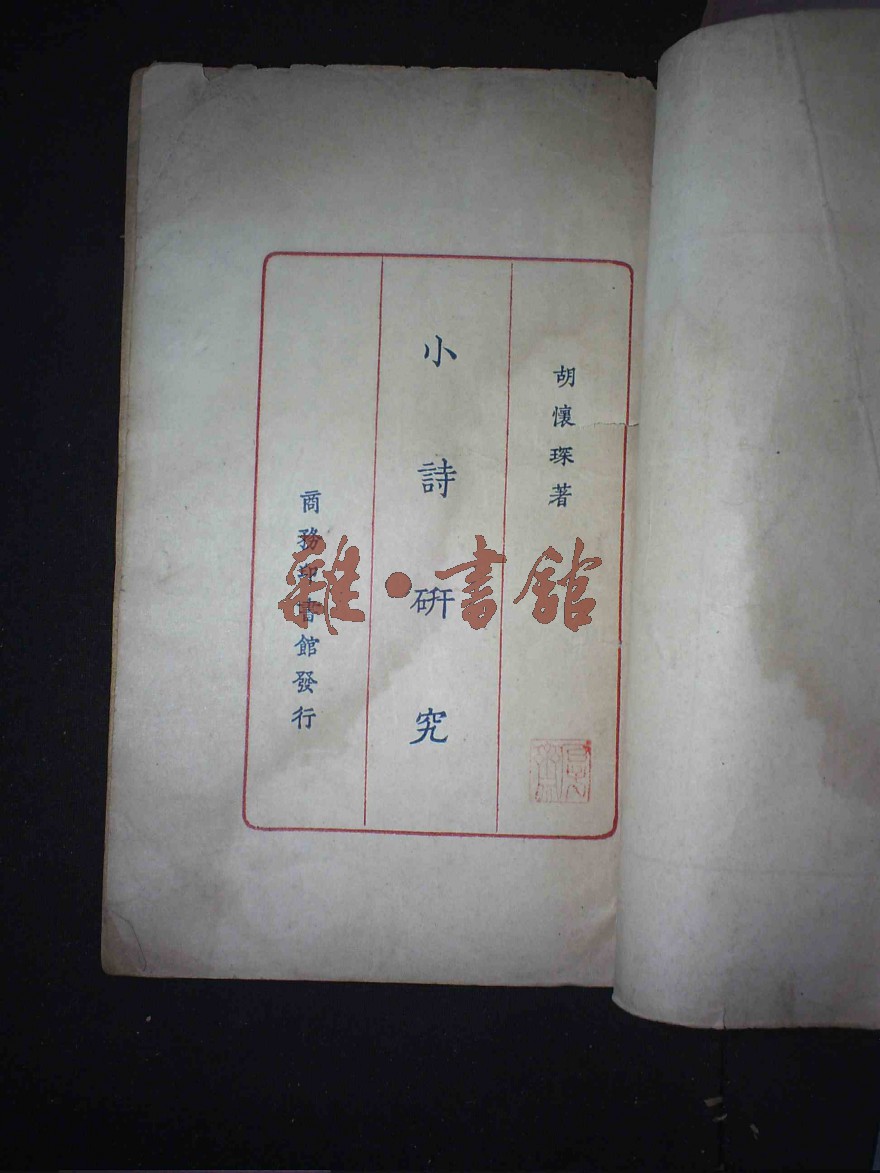 胡懷琛著
小詩研究
商務印書館發行
雜·書館